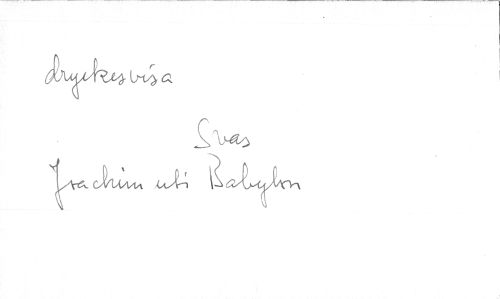 dryckesvisa
Svas
Joachim uti Babylon